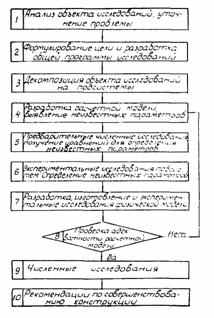 1
Анализ объекта исследований, уточ-
нение проблемы
2
Формулирование цели и разработка
общей программы исследований
3
Декомпозиция объекта исследований
на подсистемы
4
Разработка расчетной модели,
выявление неизвестных параметров
5
Предварительные численные исследования
получение уравнений для определения
неизвестных параметров
6
Экспериментальные исследования
Определение неизвестных параметров
7
Разработка, изготовление и эксперимен-
тальные исследования физической модели
8
Проверка адек-
ватности расчетной
модели
Нет
Да
9
Численные исследования
10
Рекомендации по совершенствова-
нию конструкции